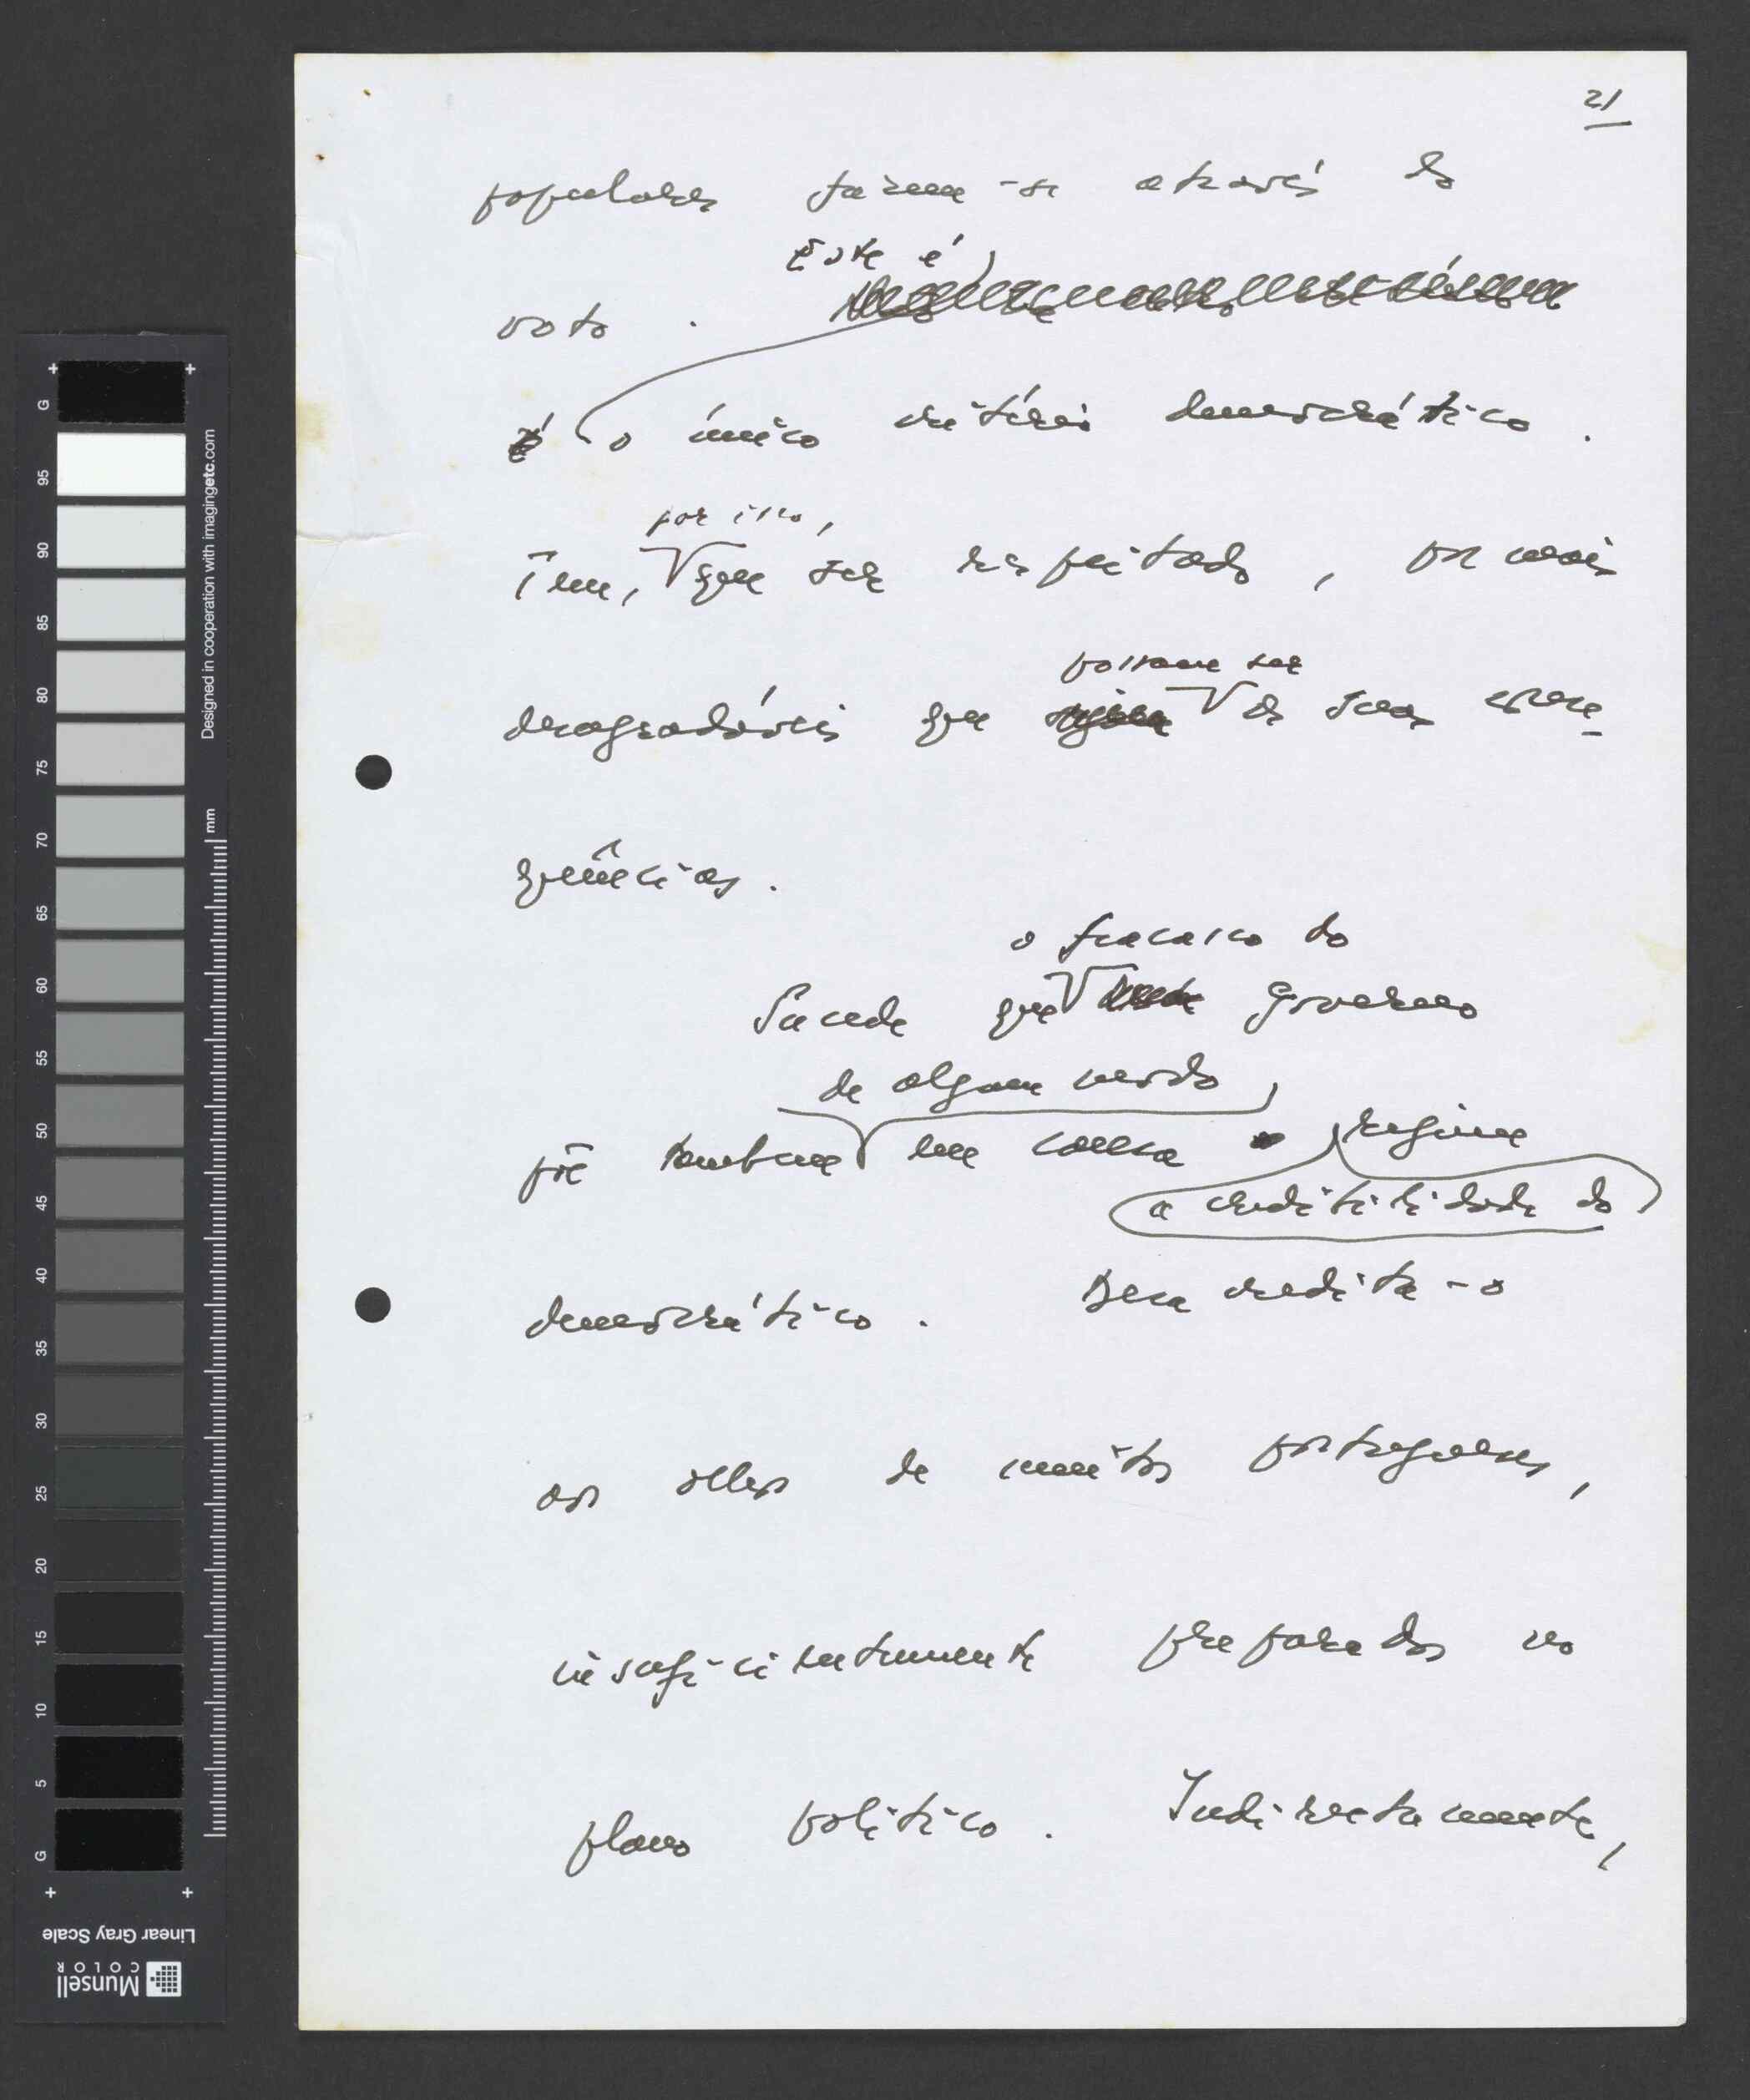 21
populares fazem-se através do
Este é
voto.
é o único critério democrático.
por isso,
Tem, que ser respeitado, por mais
possam ser
desagradáveis que sejam as suas conse-
quências.
o fracasso do
Sucede que deste Governo
de algum modo,
põe também em causa o regime
a credibilidade do
democrático. Desacredita-o
aos olhos de muitos portugueses,
insuficientemente preparados no
plano político. Indirectamente,
Designed in cooperation with imagingetc.com
mm
G 95 90 85 80 75 70 65 60 55 50 45 40 35 30 25 20 15 10 5 G
Linear Gray Scale
Munsell
COLOR